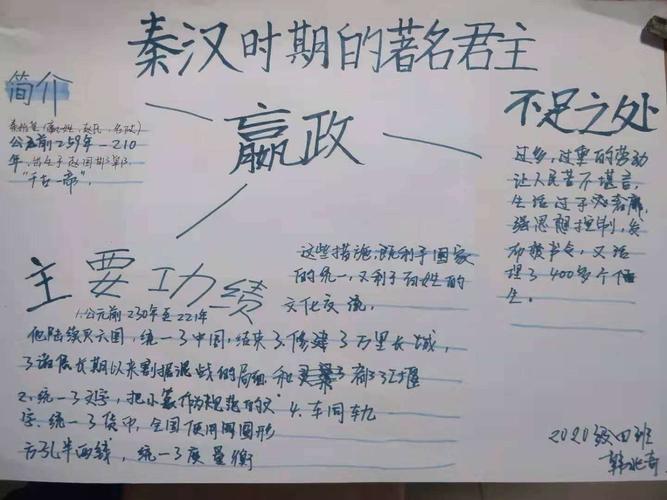 秦汉时期的著名君主
简介
秦始皇（嬴姓，赵氏，名政）
公元前259年—210
年，出生于赵国邯郸，
“千古一帝”。
嬴政
不足之处
过多，过重的劳动
让人民苦不堪言，
生活过于
强思想控制，发
布焚书令，又活
埋了400多个儒
生。
主要功绩
这些措施，既利于国家
的统一，又利于百姓的
文化交流。
1.公元前230年至221年
他陆续灭六国，统一了中国，结束了
了诸侯长期以来割据混战的局面
3.修建了万里长城，
和灵渠了都江堰
2.统一了文字，把小篆作为规范的文
字。统一了货币，全国使用圆形
方孔半两钱，统一了度量衡
4.车同轨
2020级四班
韩兆奇